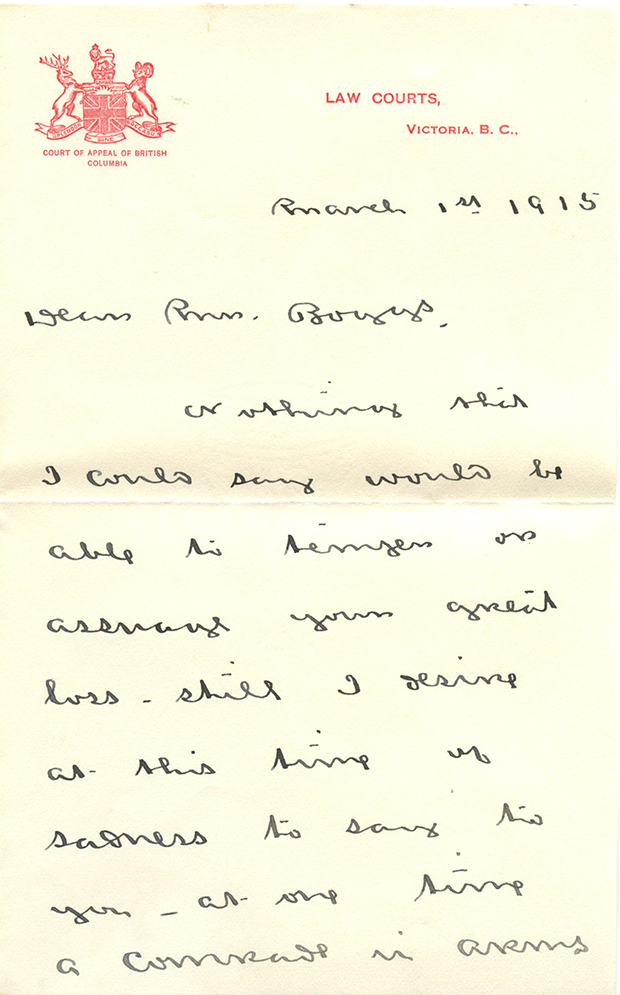 SPLENDOR SINE OCCASU
COURT OF APPEAL OF BRITISH
COLUMBIA
LAW COURTS,
VICTORIA, B. C.,
March 1st 1915
Dear Mrs. Boggs.
Nothing that
I could say would be
able to temper or
assuage your great
loss - still I desire
at this time of
sadness to say to
you - at one time
a comrade in arms